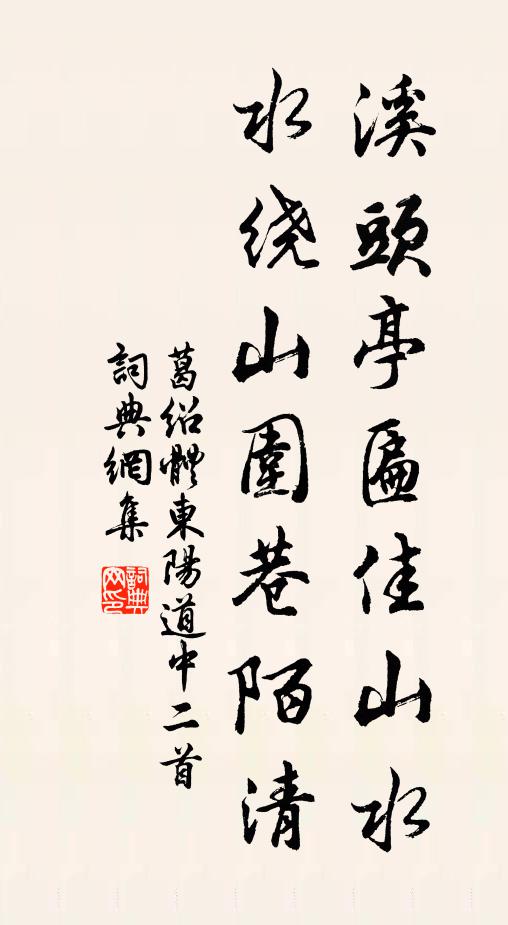 溪頭亭匾佳山水
水绕山圍巷陌清
葛绍體東陽道中二首
詞典網集
詞典
网印